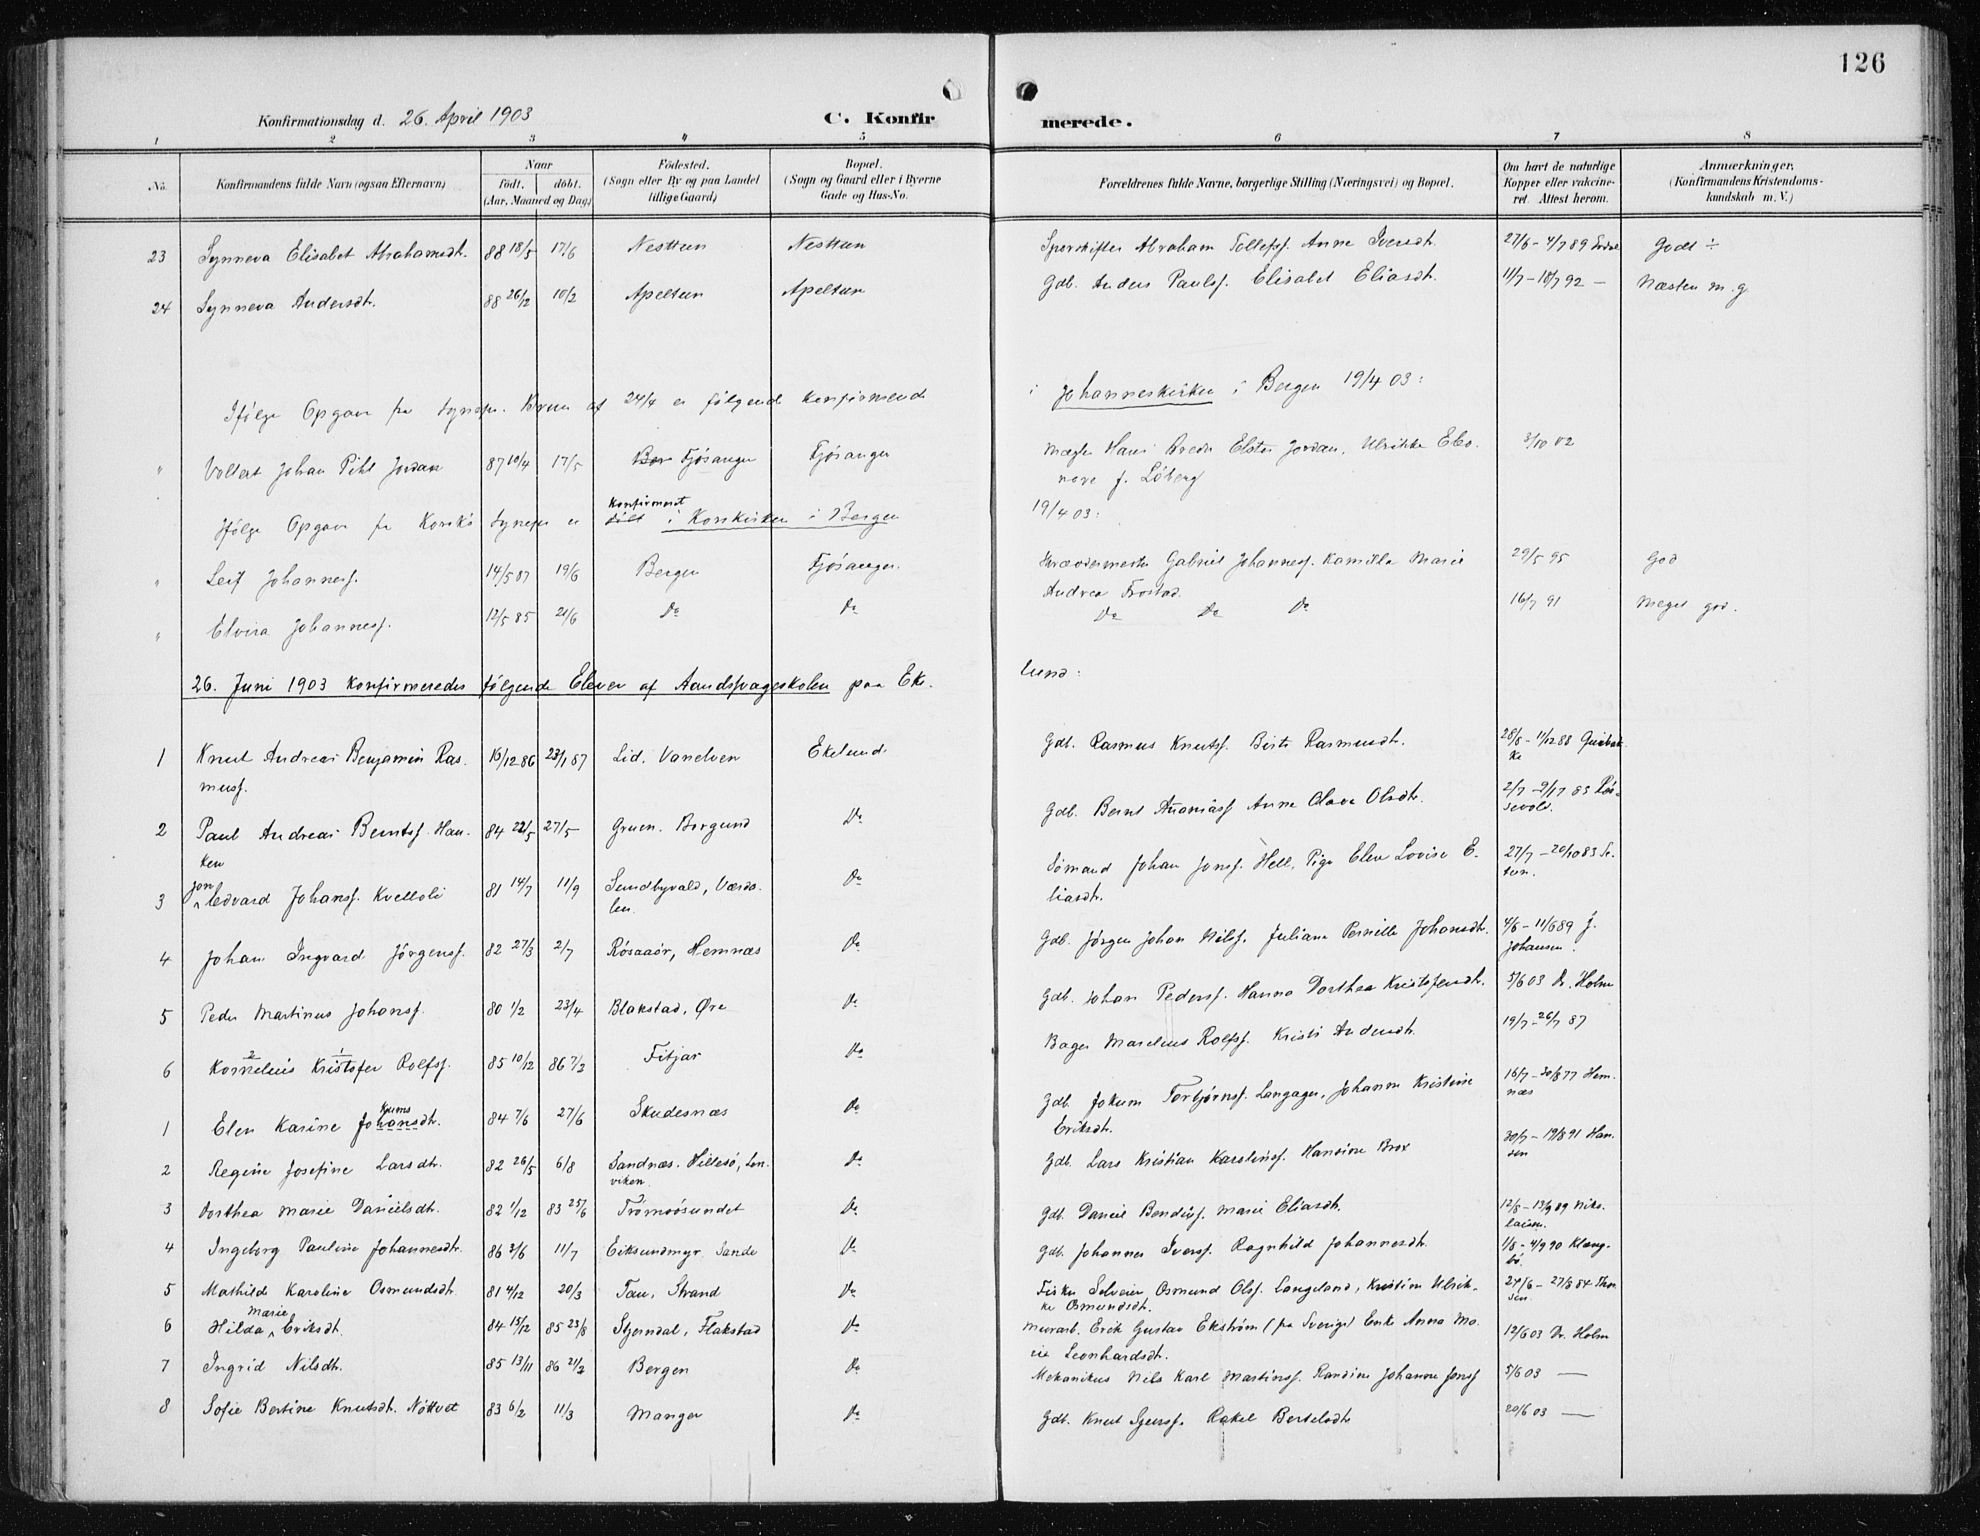 126
Konfirmationsdag d. 26. April 1903
C. Konfirmerede.
1 2 3 4 5 6 7 8
No. Konfirmandens fulde Navn (ogsaa Efternavn) Naar født. døbt. (Aar, Maaned og Dag) Fødested. (Sogn eller By og paa Landet tillige Gaard) Bopæl. (Sogn og Gaard eller i Byerne Gade og Hus-No. Forældrenes fulde Navne, borgerlige Stilling (Næringsvei) og Bopæl. Om havt de naturlige Kopper eller vakcineret. Attest herom. Anmærkninger. (Konfirmandens Kristendomskundskab m. V.)
23 Synneva Elisabet Abrahamsdt. 88 18/5 17/6 Nesttun Nesttun Sporskifter Abraham Tollefsf. Anne Iversdt. 27/6 - 4/7 89 Godt ÷
24 Synneva Andersdt. 88 26/2 10/2 Apeltun Apeltun Gdb. Anders Paulsf. Elisabet Eliasdt. 11/7 - 18/7 92 — Næsten m. g
Ifølge Opgave fra Sognepr. Bruun af 24/4 er følgende konfirmeret i Johanneskirken i Bergen 19/4 03:
" Vollert Johan Pihl Jordan 87 10/4 17/5 Fjøsanger Fjøsanger Mægler Hans Bredo Elster Jordan, Ulrikke Eleonore f. Løberg 3/10 02
Ifølge Opgave fra Korsk. Sognepr er konfirmeret i Korskirken i Bergen 19/4 03:
" Leif Johannesf. 14/5 87 19/6 Bergen Fjøsanger. Skræddermester Gabriel Johannesf. Kamilla Marie Andrea Frostad. 29/5 95 God
" Elvira Johannesf. 12/5 85 21/6 Do Do Do Do Do 16/7 91 Meget god.
26. Juni 1903 konfirmeredes følgende Elever af Aandssvageskolen paa Ekelund:
1 Knut Andreas Benjamin Rasmusf. 16/12 86 23/1 87 Lid. Vanelven Ekelund Gdb. Rasmus Knutsf. Birte Rasmusdt. 28/8 - 11/12 88
2 Paul Andreas Berntsf. Hanken 84 22/5 27/5 Gruen. Borgund Do Gdb. Bernt Ananiasf Anne Olava Olsdt. 2/7 - 9/7 85
3 Jon Edvard Johansf. Kvelloli 81 14/7 11/9 Sundbyvald, Værdalen. Do Sømand Johan Jonsf. Hell, Pige Elen Lovise Eliasdt. 27/7 - 20/10 83
4 Johan Ingvard Jørgensf. 82 27/3 2/7 Røsaaør, Hemnæs Do Gdb. Jørgen Johan Nilsf. Juliana Pernille Johansdt. 4/6 - 11/6 89 J. Johansen.
5 Peder Martinus Johansf. 80 1/2 23/4 Blakstad, Øre Do Gdb. Johan Pedersf. Hanna Dorthea Kristofersdt. 5/6 03 Dr. Holm
6 Kornelius Kristofer Rolfsf. 85 10/12 86 7/2 Fitjar Do Bager Marelius Rolfsf. Kristi Andersdt. 19/7 - 26/7 87
1 Elen Karine Jokumsdt. 84 7/6 27/6 Skudesnæs Do Gdb. Jokum Torbjørnsf. Langager, Johanne Kristine Eriksdt. 16/7 - 20/8 77 Hemnæs
2 Regine Josefine Larsdt. 82 26/5 6/8 Sandnæs. Hillesø, Lenviken. Do Gdb. Lars Kristian Karolinsf. Hansine Brox 30/7 - 19/8 91 Hansen
3 Dorthea Marie Danielsdt. 82 1/12 83 25/6 Tromøsundet Do Gdb. Daniel Bendixf. Marie Eliasdt. 12/8 - 13/9 89 Nikolaisen.
4 Ingeborg Pauline Johannesdt. 86 3/6 11/7 Eiksundmyr. Sande Do Gdb. Johannes Iversf. Ragnhild Johannesdt. 1/8 - 4/9 90
5 Mathilde Karoline Osmundsdt 81 4/12 20/3 Tau, Strand Do Fisker Selveier Osmund Olsf. Langeland, Kristine Ulrikke Osmundsdt. 24/6 - 27/8 84
6 Hilda Marie Eriksdt. 84 15/12 85 23/8 Stjerndal, Flakstad Do Murarb. Erik Gustav Ekstrøm (fra Sverige) Enke Anna Marie Leonhardsdt. 12/6 03 Dr. Holm
7 Ingrid Nilsdt. 85 13/11 86 21/2 Bergen Do Mekanikus Nils Karl Martinsf. Randine Johanne Jensf 5/6 03 —
8 Sofie Bertine Knutsdt. Nøttvet 83 6/2 11/3 Manger Do Gdb. Knut Sjursf. Rakel Bertelsdt 20/6 03 —